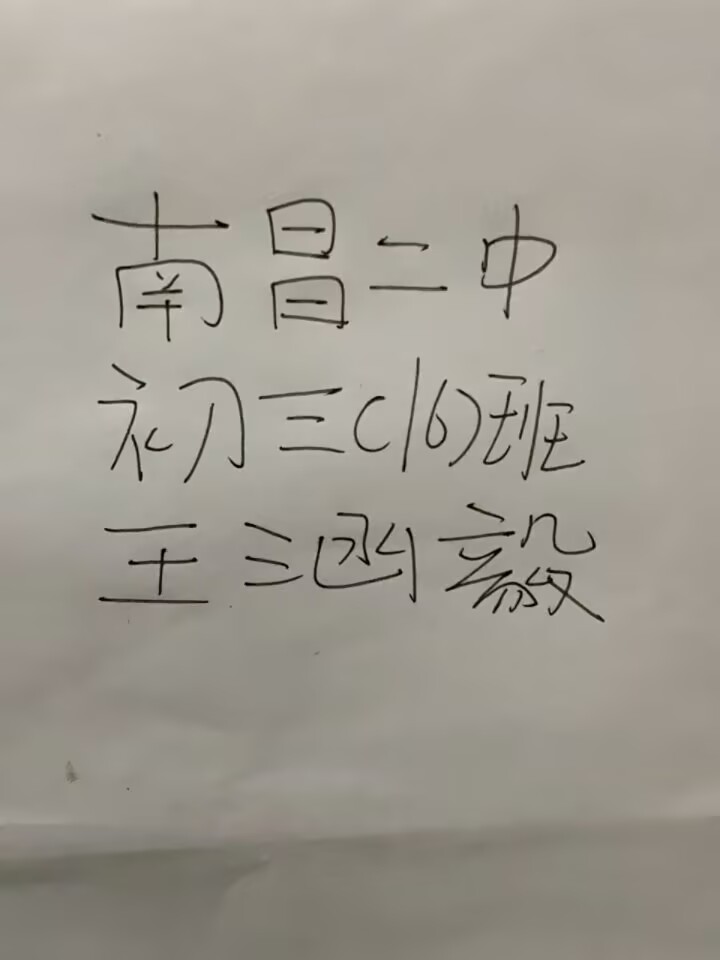 南昌二中
初三(16)班
王涵毅